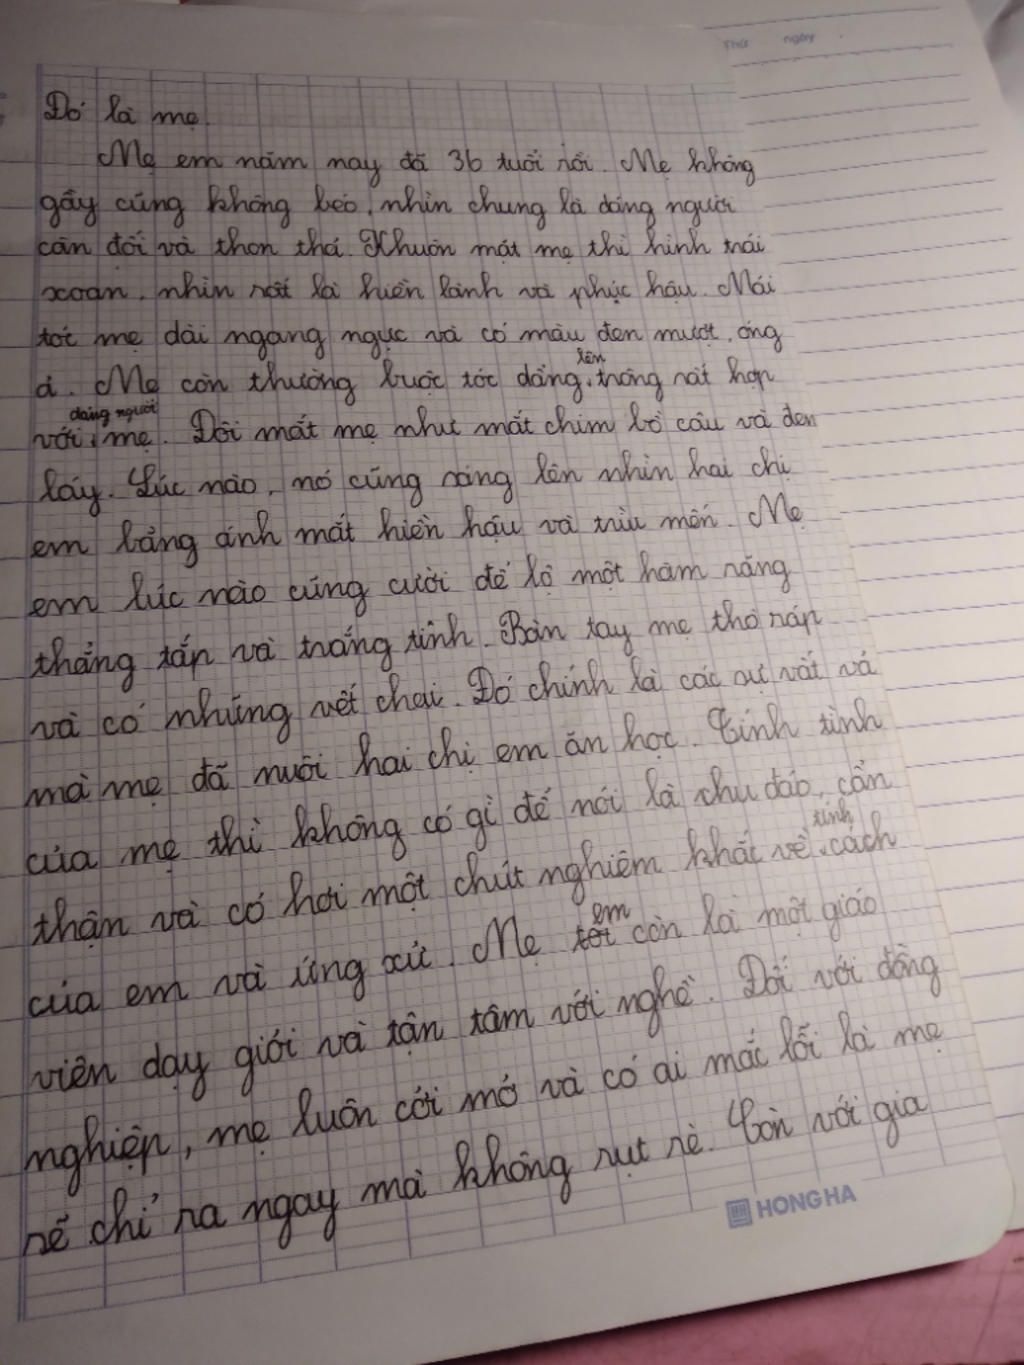 Thứ ngày
Đó là mẹ.
Mẹ em năm nay đã 36 tuổi rồi. Mẹ không
gầy cũng không béo, nhìn chung là dáng người
cân đối và thon thả. Khuôn mặt mẹ thì hình trái
xoan, nhìn rất là hiền lành và phúc hậu. Mái
tóc mẹ dài ngang ngực và có màu đen mượt, óng
ả. Mẹ còn thường buộc tóc đằng lên, trông rất hợp
với dáng người mẹ. Đôi mắt mẹ như mắt chim bồ câu và đen
láy. Lúc nào, nó cũng sáng lên nhìn hai chị
em bằng ánh mắt hiền hậu và trìu mến. Mẹ
em lúc nào cũng cười để lộ một hàm răng
thẳng tắp và trắng tinh. Bàn tay mẹ thô ráp
và có những vết chai. Đó chính là các sự vất vả
mà mẹ đã nuôi hai chị em ăn học. Tính tình
của mẹ thì không có gì để nói là chu đáo, cẩn
thận và có hơi một chút nghiêm khắc về tính cách
của em và ứng xử. Mẹ em còn là một giáo
viên dạy giỏi và tận tâm với nghề. Đối với đồng
nghiệp, mẹ luôn cởi mở và có ai mắc lỗi là mẹ
sẽ chỉ ra ngay mà không rụt rè. Còn với gia
HONG HA